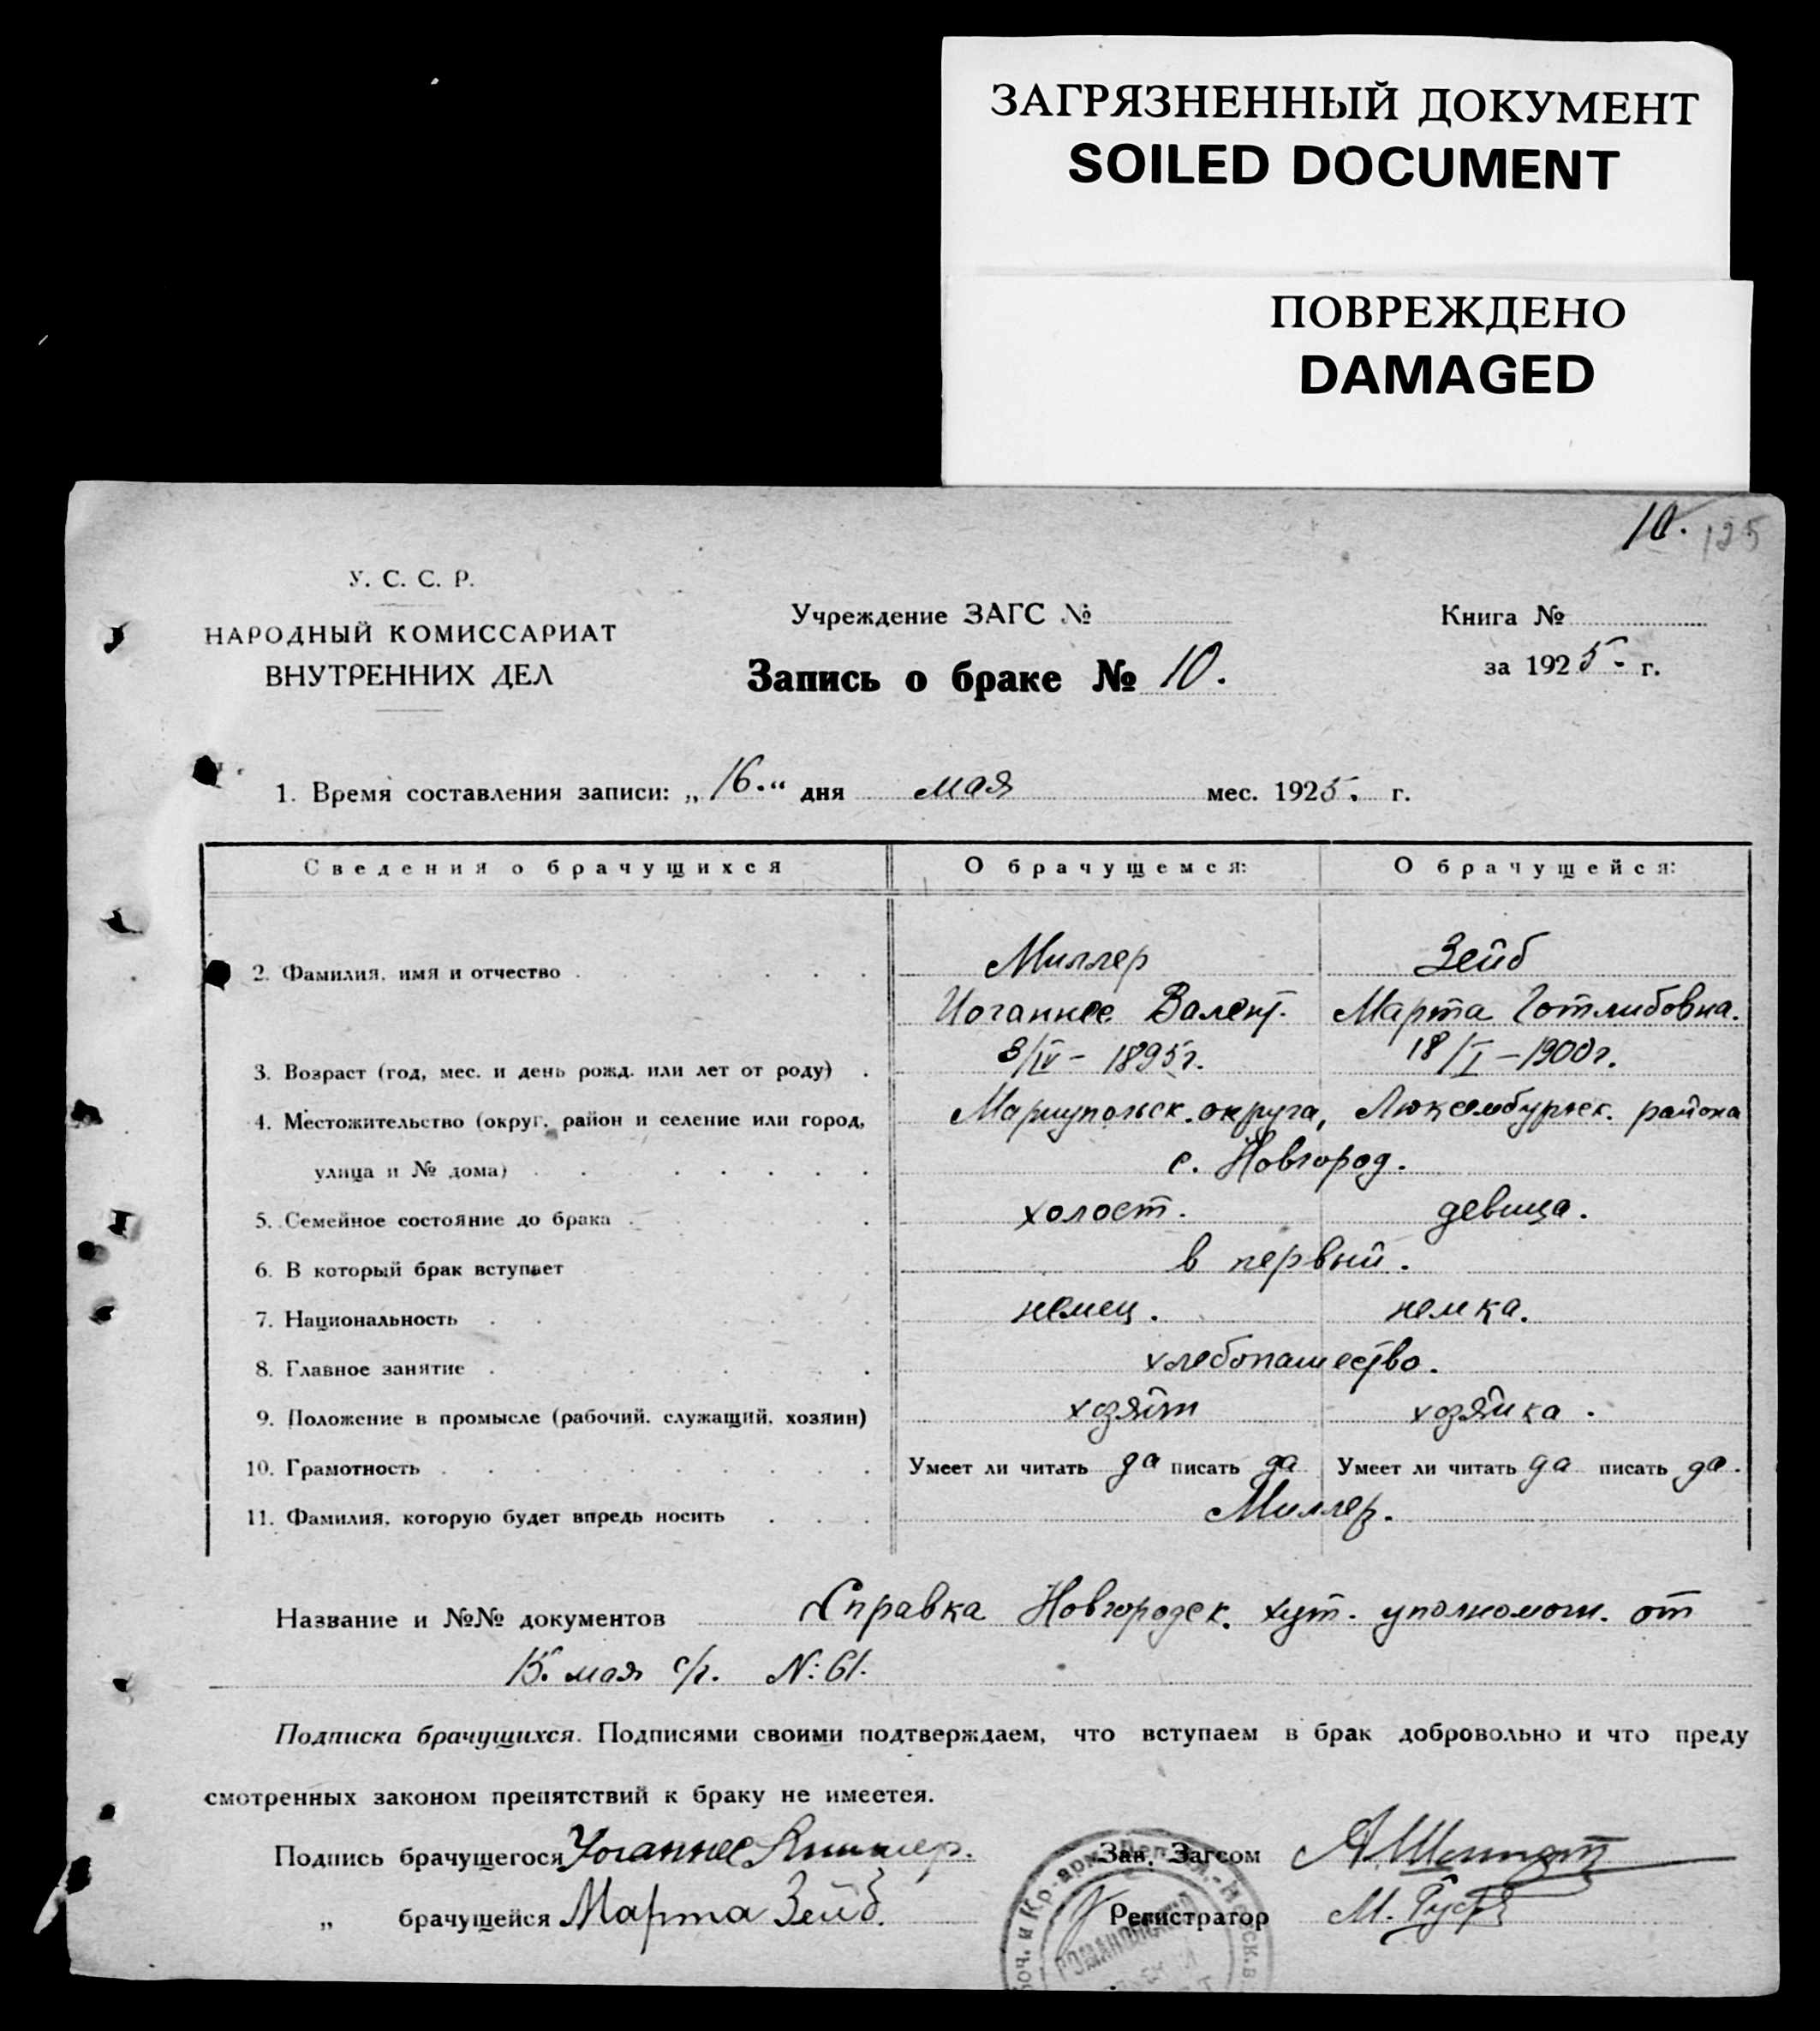 ЗАГРЯЗНЕННЫЙ ДОКУМЕНТ
SOILED DOCUMENT
ПОВРЕЖДЕНО
DAMAGED
10. 125
У. С. С. Р.
НАРОДНЫЙ КОМИССАРИАТ
ВНУТРЕННИХ ДЕЛ
Учреждение ЗАГС №
Запись о браке № 10.
Книга №
за 1925 г.
1. Время составления записи: „16.“ дня мая мес. 1925. г.
Сведения о брачущихся О брачущемся: О брачущейся:
2. Фамилия, имя и отчество Миллер Зейб
Иоганнес Валент. Марта Готлибовна.
3. Возраст (год, мес. и день рожд. или лет от роду) 3/IV – 1895г. 18/I – 1900г.
4. Местожительство (округ, район и селение или город, Мариупольск. округа, Люксембургск. района
улица и № дома) с. Новгород.
5. Семейное состояние до брака холост. девица.
6. В который брак вступает в первый.
7. Национальность немец. немка.
8. Главное занятие хлебопашество.
9. Положение в промысле (рабочий, служащий, хозяин) хозяин хозяйка.
10. Грамотность Умеет ли читать да писать да Умеет ли читать да писать да.
11. Фамилия, которую будет впредь носить Миллер.
Название и №№ документов Справка Новгородск. хут. уполномоч. от
15. мая с/г. N: 61.
Подписка брачущихся. Подписями своими подтверждаем, что вступаем в брак добровольно и что преду
смотренных законом препятствий к браку не имеется.
Подпись брачущегося Иоганнес Миллер. Зав. Загсом
„ брачущейся Марта Зейб. Регистратор М.
РОМАНОВСКИЙ